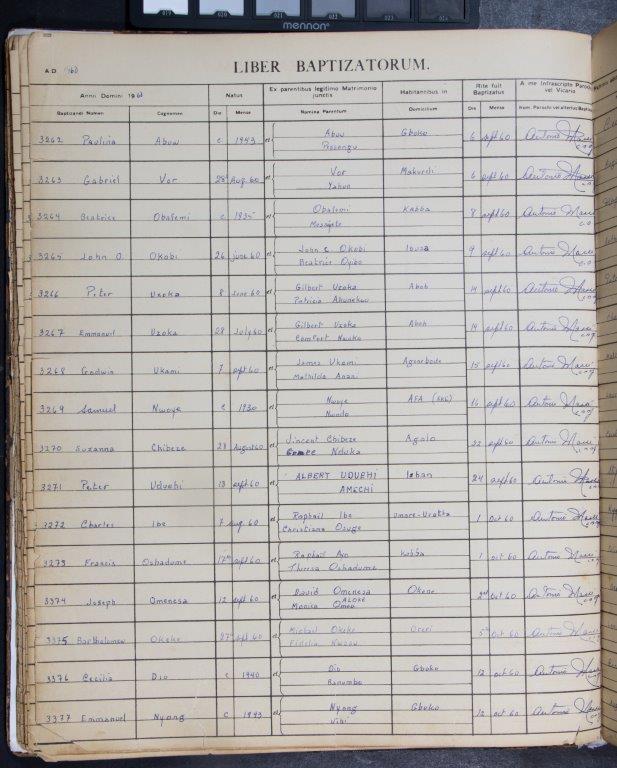 019 020 021 022 023
mennon
LIBER BAPTIZATORUM.
A D
Annii Domini 19 Natus Ex parentibus legitimo Matrimonio junctis Habitantibus in Rite fuit Baptizatus A me Infrascripto Paroc vel Vicario
Baptizandi Nomen Cognomen Die Mense Nomina Parentum Domicilium Die Mense Nom. Parochi vel alterius Baptiz
3262 Paulina Abuu c 1943 et Abuu Gboko 6 sept 60 Antonio
3263 Gabriel Vor 28 Aug. 60 et Vor Makurdi 6 sept 60 Antonio
Yahuo
3264 Beatrice Obalemi c 1935 et Obalemi Kabba 8 sept 60 Antonio
3265 John O. Okobi 26 june 60 et John C. Okobi 9 sept 60 Antonio
Beatrice Oyibo
3266 Peter Uzoka 8 June 60 et Gilbert Uzoka Aboh 14 sept 60 Antonio
Patricia
3267 Emmanuel Uzoka 28 July 60 et Gilbert Uzoka Aboh 14 sept 60 Antonio
Comfort Nwoko
3268 Godwin Ukami 7 sept 60 et James Ukami Agenebode 15 sept 60 Antonio
Mathilda Anani
3269 Samuel Nwoye c 1930 et Nwoye AFA 16 sept 60 Antonio
Nondo
3270 Suzanna Chibeze 28 August 60 et Vincent Chibeze Agolo 22 sept 60 Antonio
Nduka
3271 Peter Udushi 18 sept 60 et ALBERT UDUSHI Ioban 24 sept 60 Antonio
AMECHI
3272 Charles Ibe 7 Aug. 60 et Raphael Ibe Umore-Uratta 1 Oct 60 Antonio
Christiana Osuge
3273 Francis Oshadume 17th sept 60 et Raphael Ayo Kabba 1 oct 60 Antonio
Theresa Oshadume
3374 Joseph Omenesa 12 sept 60 et David Omenesa Okene 2nd oct 60 Antonio
ALOKE
Monica Omoo
3375 Bartholomew Okeke 27 sept 60 et Michael Okeke Oreri 5th Oct 60 Antonio
Fidelia
3376 Cecilia Dio c 1940 et Dio Gboko 12 oct 60 Antonio
Ranumbe
3377 Emmanuel Nyong c 1943 et Nyong Gboko 12 oct 60 Antonio